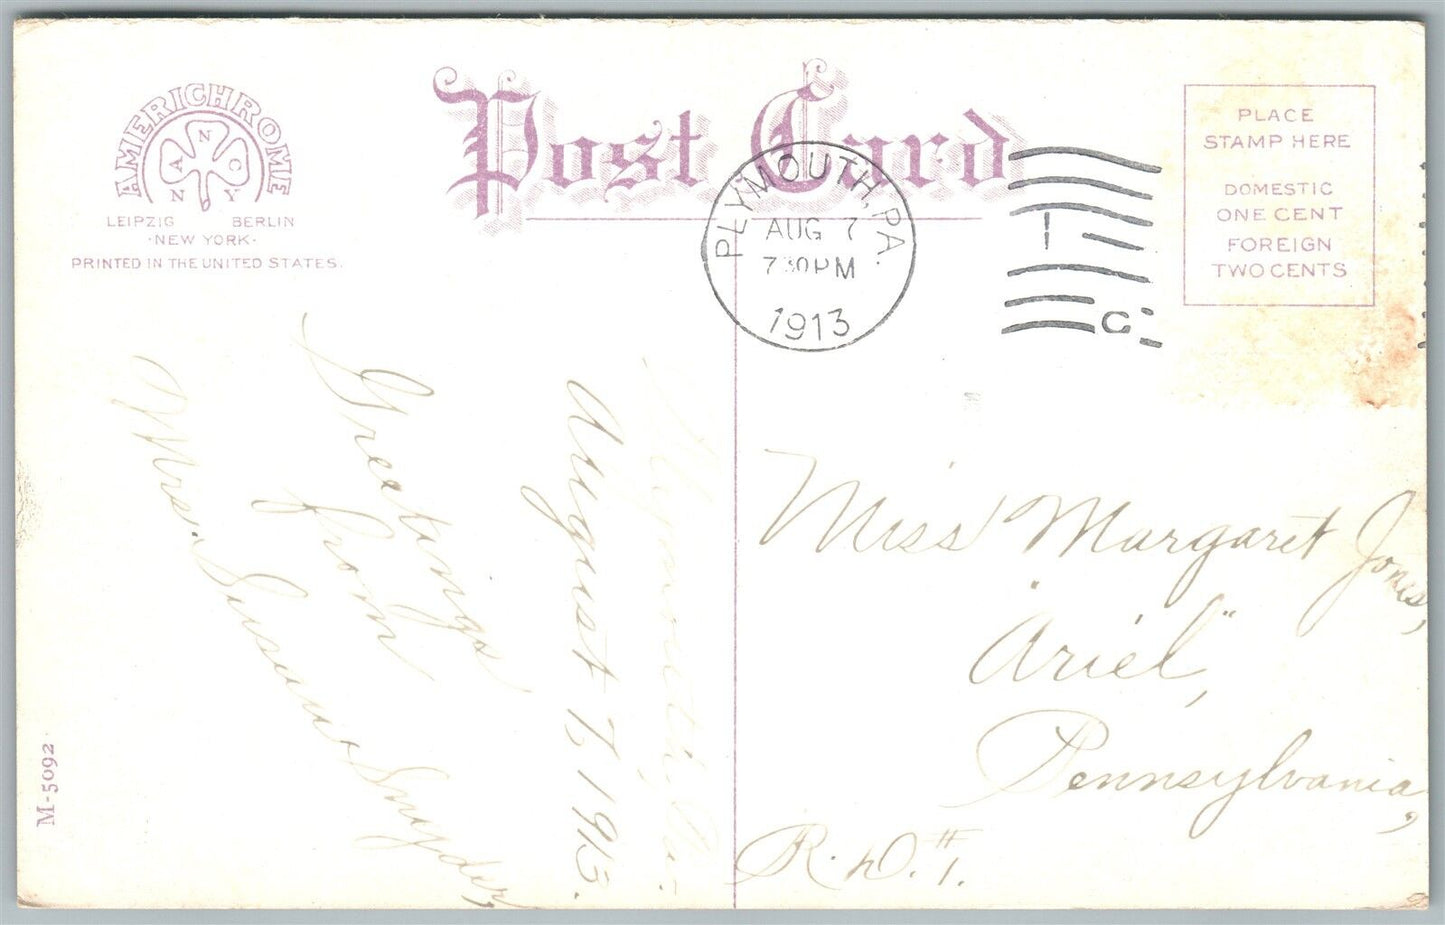 AMERICHROME
A N C
N Y
LEIPZIG BERLIN
·NEW YORK·
PRINTED IN THE UNITED STATES.
Post Card
PLYMOUTH, PA.
AUG 7
7 30 PM
1913
C
PLACE
STAMP HERE
DOMESTIC
ONE CENT
FOREIGN
TWO CENTS
Plymouth, Pa.
August 7, 1913.
Greetings
from
Mrs. Snyder,
Miss Margaret Jones,
"Ariel",
Pennsylvania,
R.D. #1.
M-5092